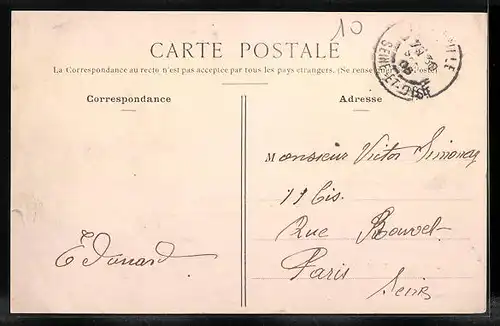 10
CARTE POSTALE
La Correspondance au recto n'est pas acceptée par tous les pays étrangers. (Se renseigner à la Poste)
Correspondance
Adresse
SEINE-ET-OISE
Monsieur Victor Simonay
11 bis.
Rue Bouvet
Paris
Seine
Edouard